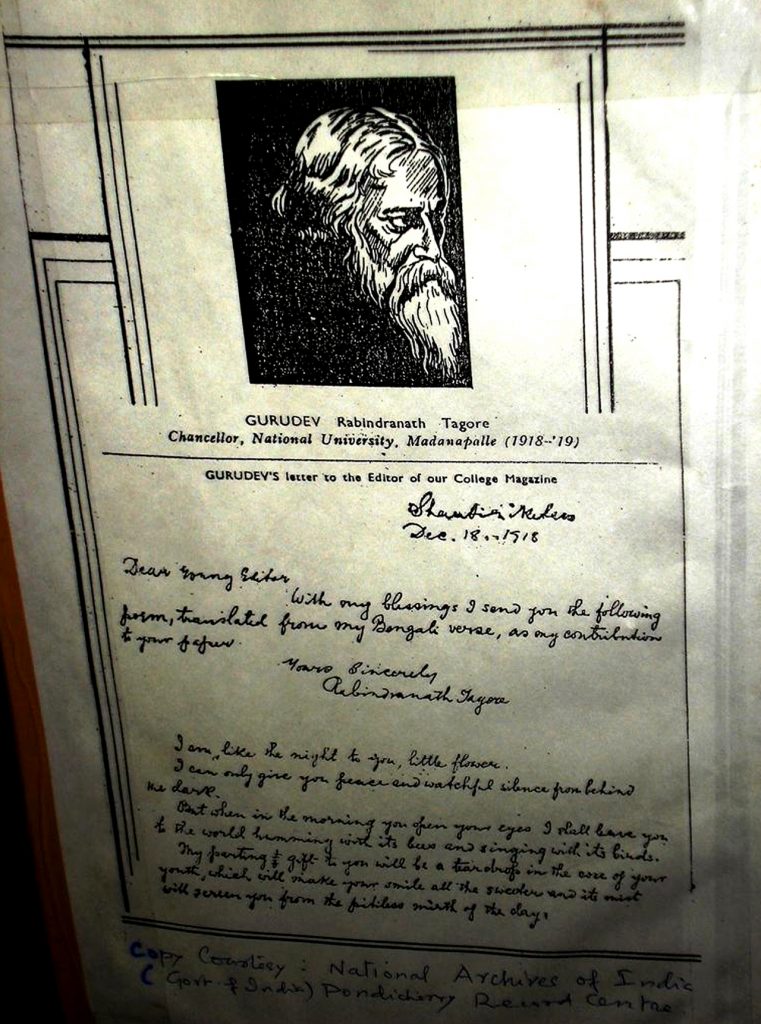 GURUDEV Rabindranath Tagore
Chancellor, National University, Madanapalle (1918-'19)
GURUDEV'S letter to the Editor of our College Magazine
Shantiniketan
Dec. 18. 1918
Dear Young Editor
With my blessings I send you the following
poem, translated from my Bengali verse, as my contribution
to your paper.
Yours Sincerely
Rabindranath Tagore
I am, like the night to you, little flower.
I can only give you peace and watchful silence from behind
the dark.
But when in the morning you open your eyes I shall leave you
to the world humming with its bees and singing with its birds.
My parting gift to you will be a teardrop in the core of your
youth, which will make your smile all the sweeter and its mist
will screen you from the pitiless mirth of the day.
Copy Courtesy : National Archives of India
(Govt. of India) Pondicherry Record Centre